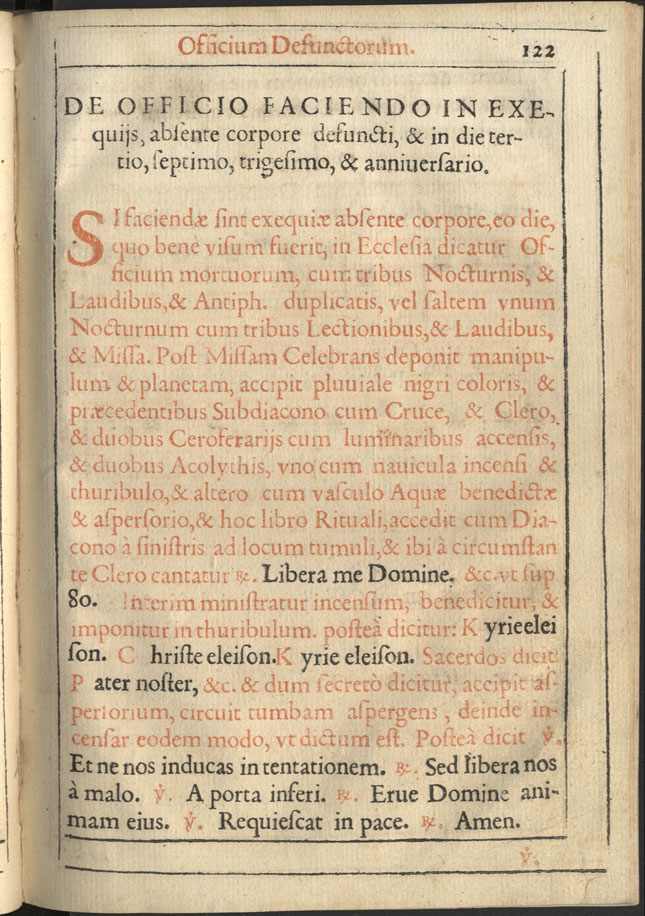 Officium Defunctorum. 122
DE OFFICIO FACIENDO IN EXE-
quijs, absente corpore defuncti, & in die ter-
tio, septimo, trigesimo, & anniuersario.
SI faciendæ sint exequiæ absente corpore, eo die,
quo benè visum fuerit, in Ecclesia dicatur Of-
ficium mortuorum, cum tribus Nocturnis, &
Laudibus, & Antiph. duplicatis, vel saltem vnum
Nocturnum cum tribus Lectionibus, & Laudibus,
& Missa. Post Missam Celebrans deponit manipu-
lum & planetam, accipit pluuiale nigri coloris, &
præcedentibus Subdiacono cum Cruce, & Clero,
& duobus Ceroferarijs cum luminaribus accensis,
& duobus Acolythis, vno cum nauicula incensi &
thuribulo, & altero cum vasculo Aquæ benedictæ
& aspersorio, & hoc libro Rituali, accedit cum Dia-
cono à sinistris ad locum tumuli, & ibi à circumstan
te Clero cantatur ℟. Libera me Domine. &c. vt sup
80. Interim ministratur incensum, benedicitur, &
imponitur in thuribulum. posteà dicitur: K yrie elei
son. C hriste eleison. K yrie eleison. Sacerdos dicit
P ater noster, &c. & dum secretò dicitur, accipit as-
persorium, circuit tumbam aspergens, deinde in-
censar eodem modo, vt dictum est. Posteà dicit ℣.
Et ne nos inducas in tentationem. ℟. Sed libera nos
à malo. ℣. A porta inferi. ℟. Erue Domine ani-
mam eius. ℣. Requiescat in pace. ℟. Amen.
℣.